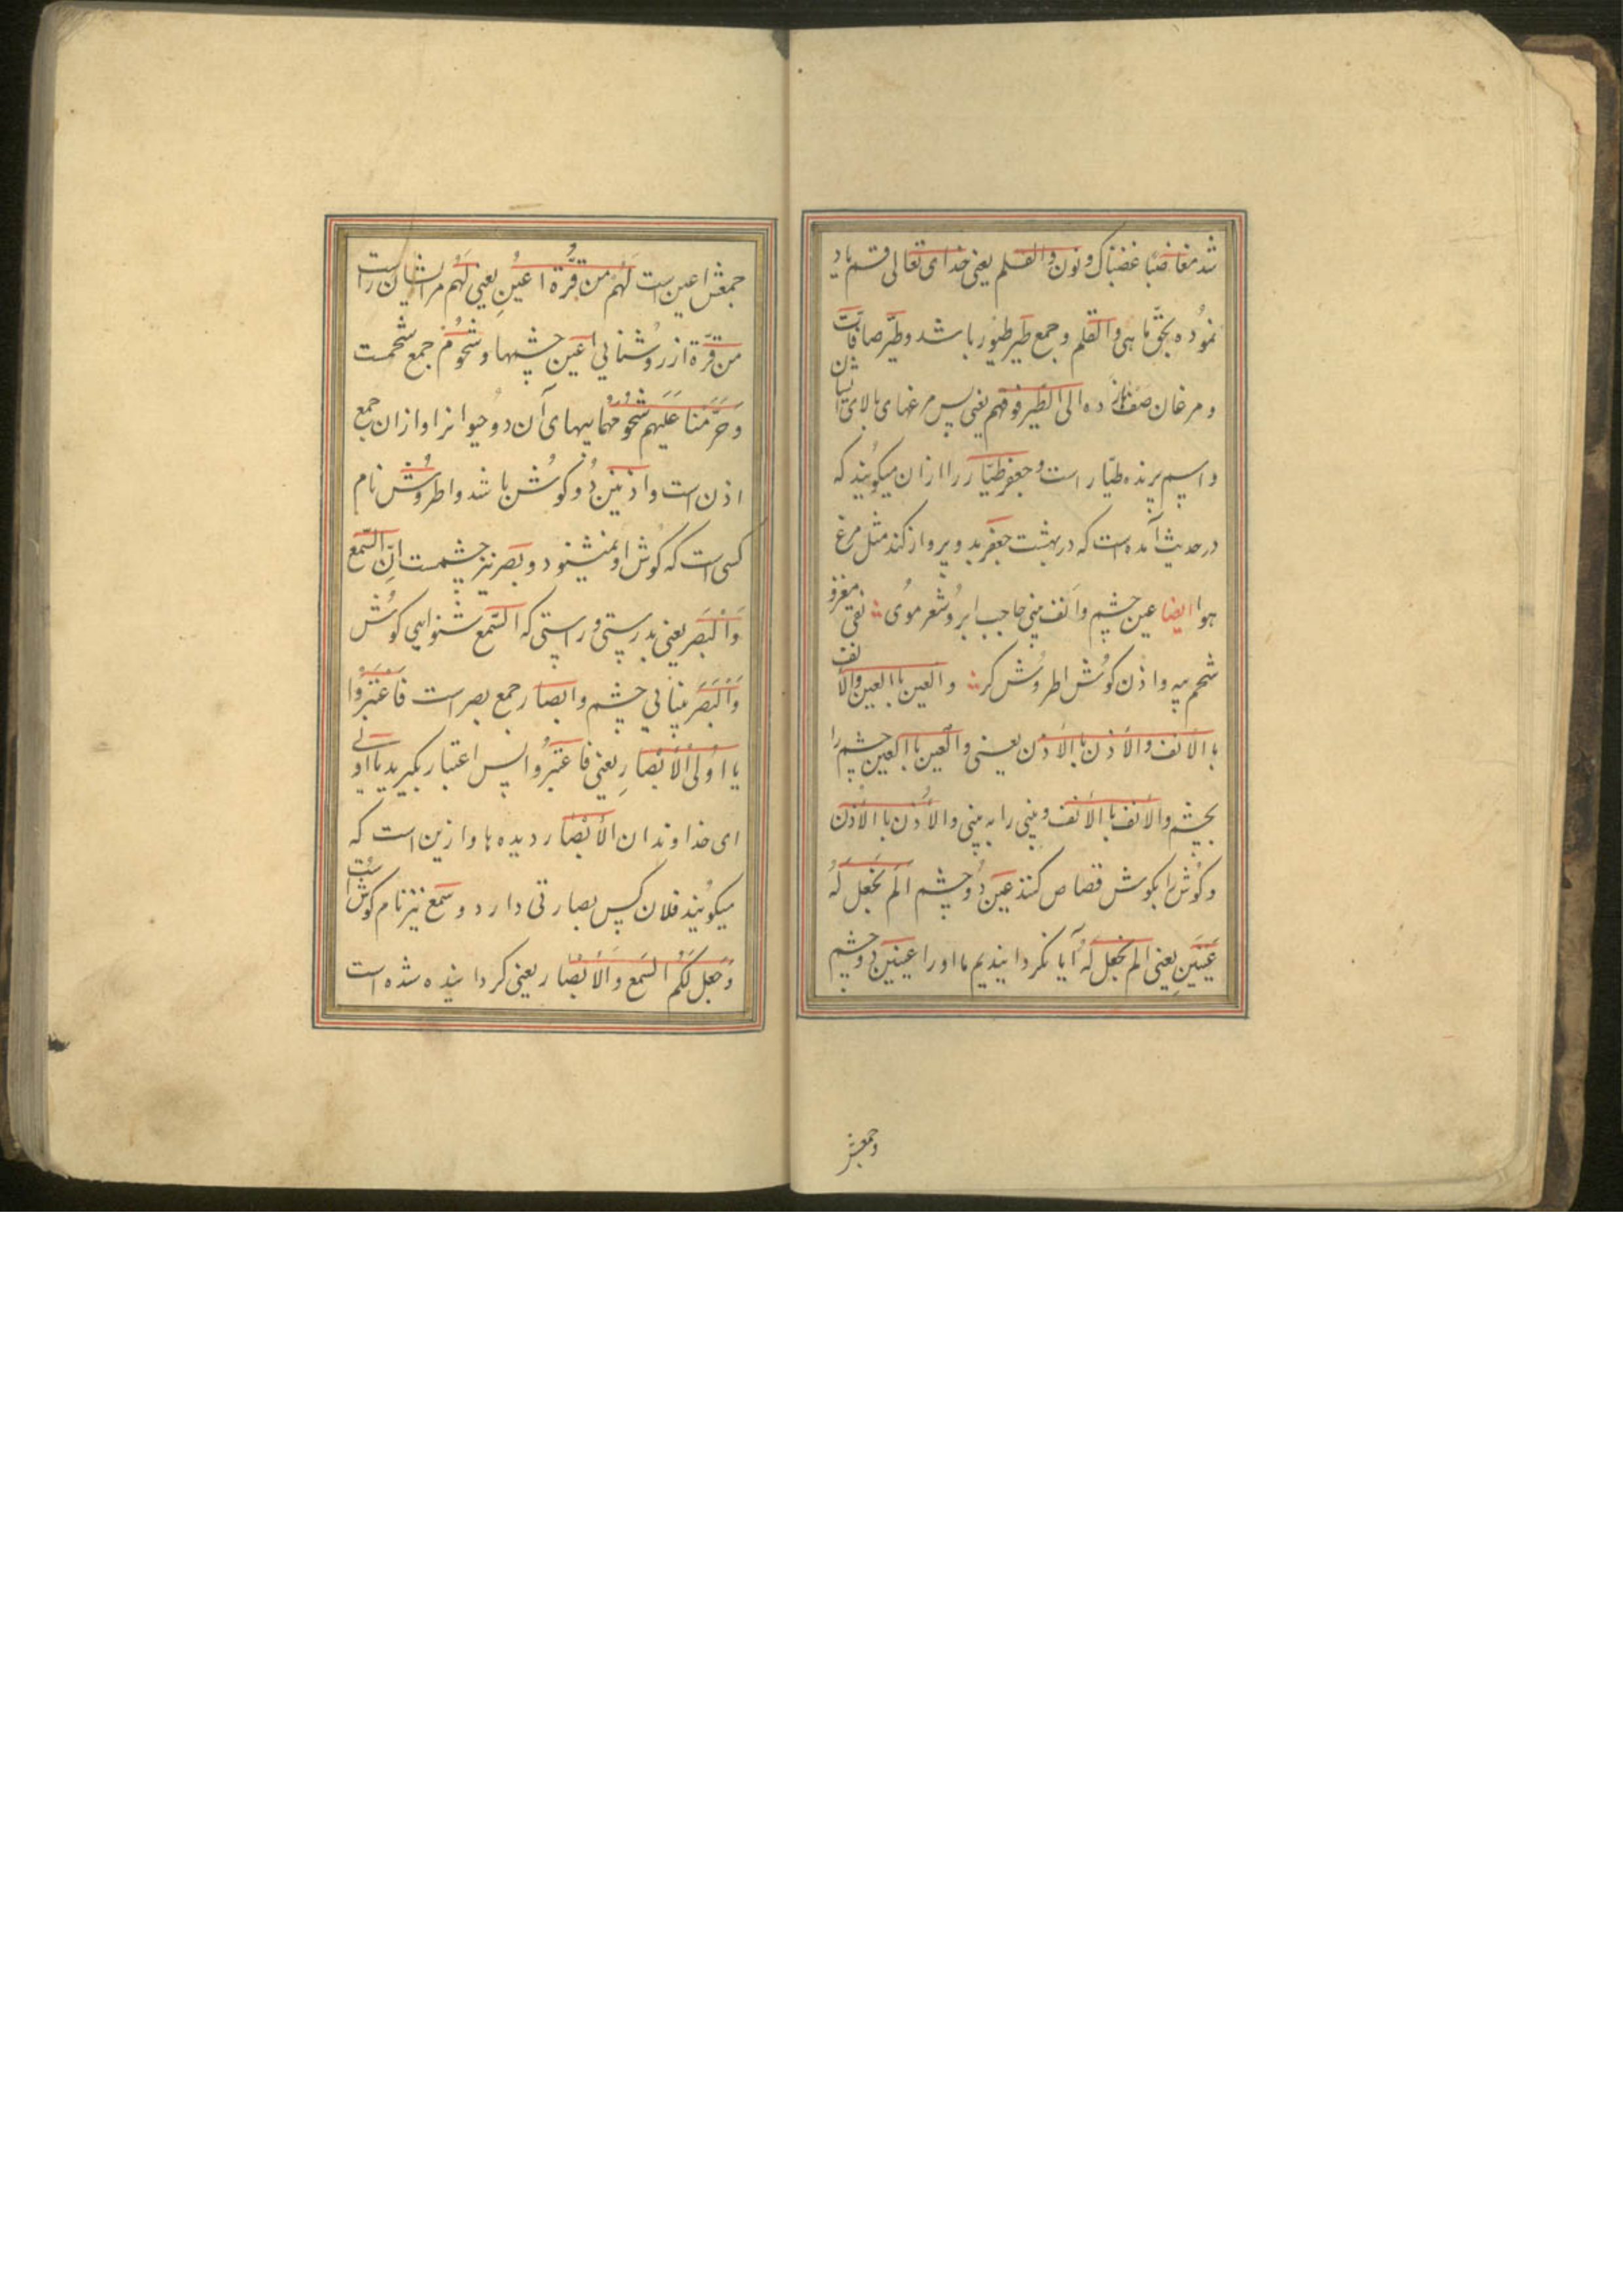 شد مغاضبًا غضبناک و نون والقلم یعنی خدای تعالی قسم یاد
نموده بحقّ ماهی والقلم و جمع طیر طیور باشد و طیّر صافّات
و مرغان صف زده الی الطّیر فوقهم یعنی پس مرغهای بالای ایشان
و اسم پرنده طیّار است و جعفر طیّار را ازان میکویند که
در حدیث آمده است که در بهشت جعفر بدو پرواز کند مثل مرغ
هوا ایضا عین چشم و انف بینی حاجب ابرو شعر موی نقی مغز و
شحم پیه و اذن کوش اطروش کر والعین باالعین والانف
باالانف والاذن باالاذن یعنی والعین باالعین چشم را
بچشم والانف باالانف و بینی را به بینی والاذن باالاذن
و کوش را بکوش قصاص کنند عین دو چشم الم نجعل له
عینین یعنی الم نجعل له آیا نکردانیدیم ما اورا عینین دو چشم
و جمعش
جمعش اعین است لهم من قرّة اعین یعنی لهم مر ایشان راست
من قرّة از روشنایی اعین چشمها و شحوم جمع شحمست
و حرّمنا علیهم شحومهما پیهای آن دو حیوانرا و اذان جمع
اذن است و اذنین دو کوش باشد و اطروش نام
کسی است که کوش او نمیشنود و بصر نیز چشمست انّ السّمع
والبصر یعنی بدرستی و راستی که السّمع شنوایی کوش
والبصر بینایی چشم و ابصار جمع بصر است فاعتبروا
یا اولی الابصار یعنی فاعتبروا پس اعتبار بکیرید یا اولی
ای خداوندان الابصار دیده ها و ازین است که
میکویند فلان کس بصارتی دارد و سمع نیز نام کوش است
و جعل لکم السّمع والابصار یعنی کردانیده شده است